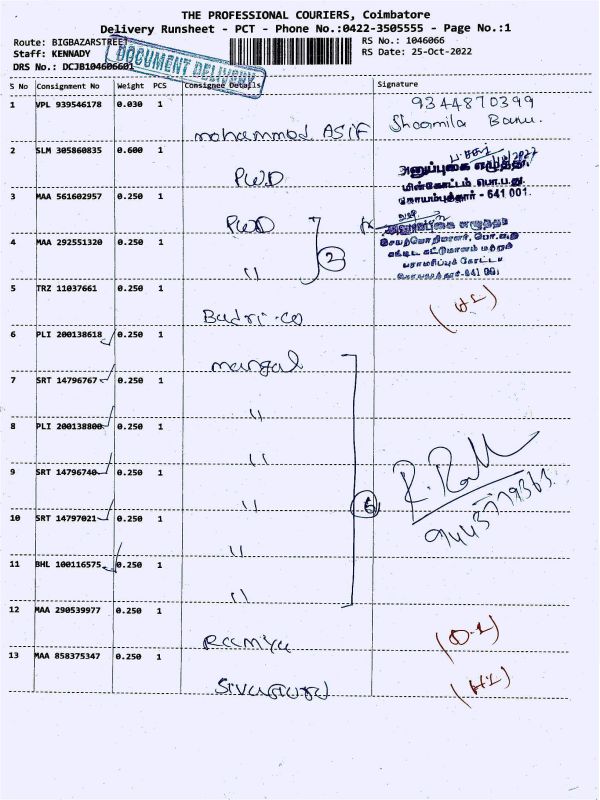 THE PROFESSIONAL COURIERS, Coimbatore
Delivery Runsheet - PCT - Phone No.:0422-3505555 - Page No.:1
Route: BIGBAZARSTREET
RS No.: 1046066
Staff: KENNADY
RS Date: 25-Oct-2022
DRS No.: DCJB104606601
DOCUMENT DELIVERY
S No Consignment No Weight PCS Consignee Details Signature
1 VPL 939546178 0.030 1 9344870399
mohammed ASIF Shaamila Banu.
2 SLM 305860835 0.600 1
PWD
அனுப்புகை எழுத்தர்
மின்கோட்டம் பொ.ப.து.
கோயம்புத்தூர் - 641 001.
3 MAA 561602957 0.250 1
PWD
அனுப்புகை எழுத்தர்
4 MAA 292551320 0.250 1
" 2
5 TRZ 11037661 0.250 1
Badri-co
6 PLI 200138618 0.250 1
mangal
7 SRT 14796767 0.250 1
"
8 PLI 200138800 0.250 1
"
9 SRT 14796740 0.250 1
" 6
10 SRT 14797021 0.250 1
"
11 BHL 100116575 0.250 1
"
12 MAA 290539977 0.250 1
Ramya
13 MAA 858375347 0.250 1